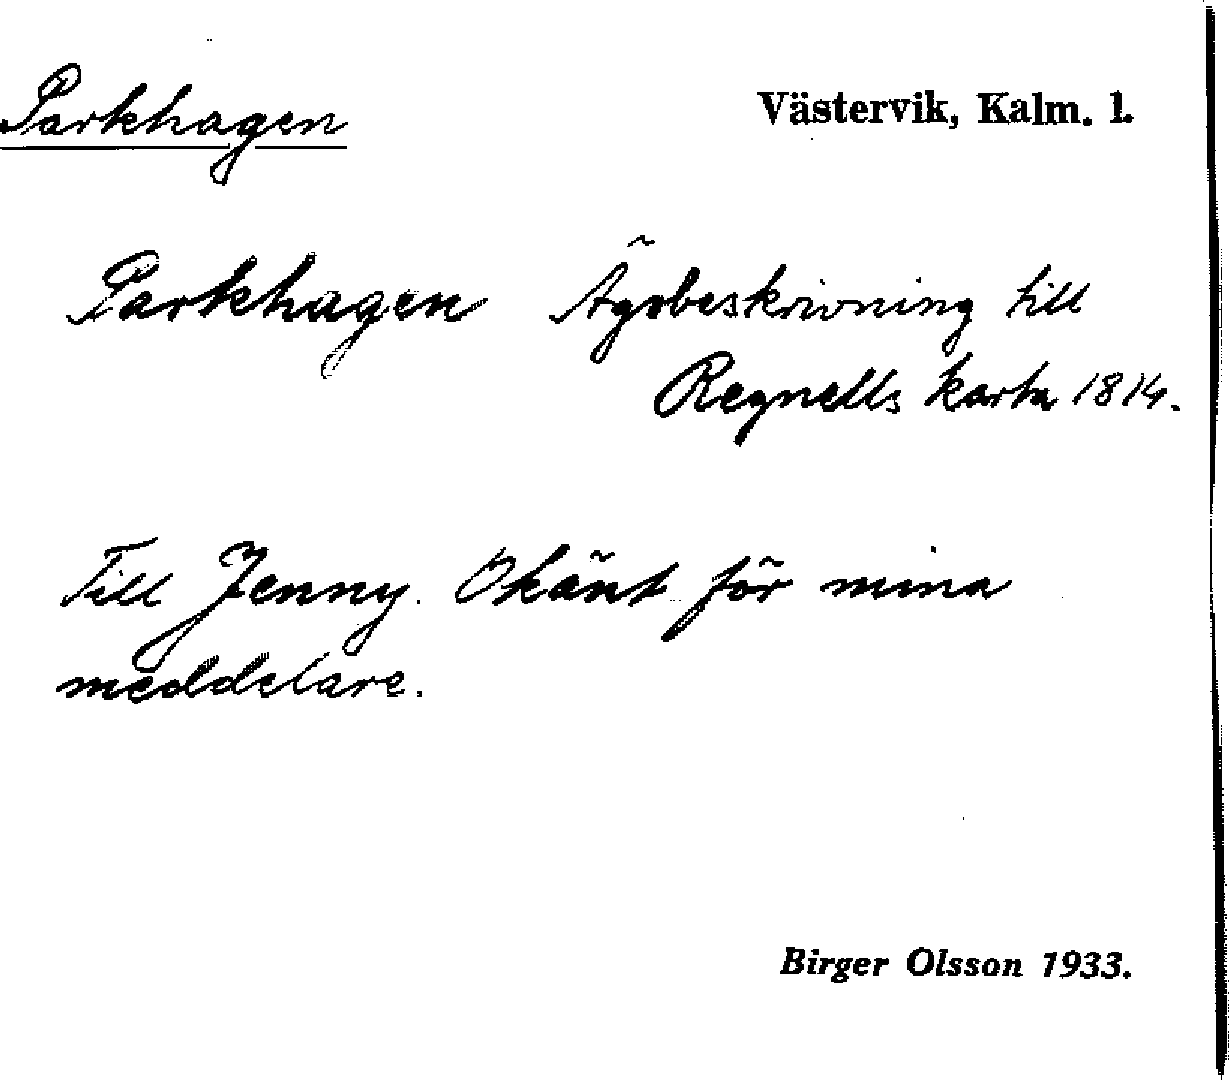 Parkhagen
Västervik, Kalm. l.
Parkhagen Ägobeskrivning till
Regnells karta 1814.
Till Jenny. Okänt för mina
meddelare.
Birger Olsson 1933.